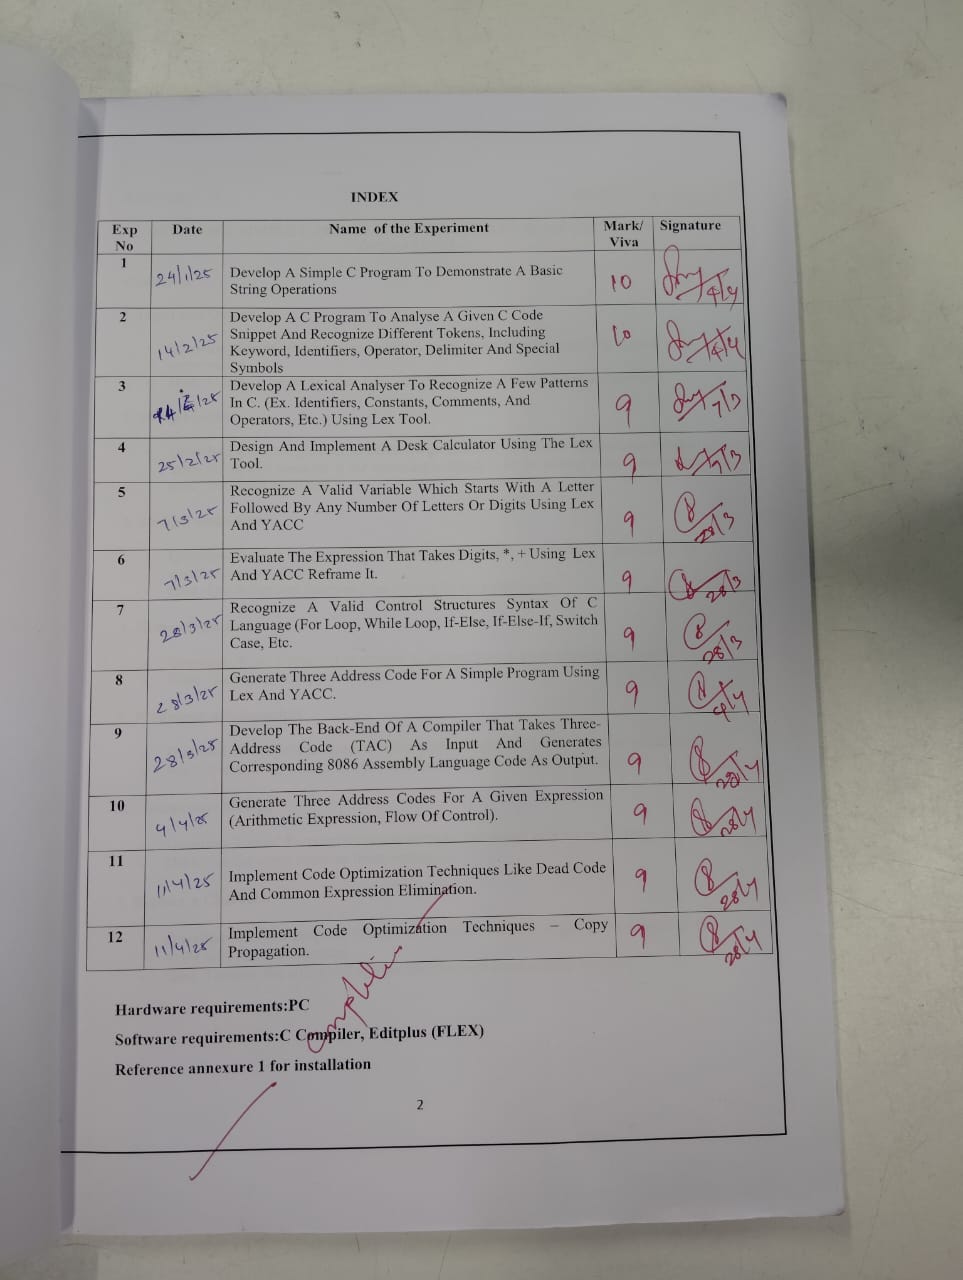 INDEX
Exp No Date Name of the Experiment Mark/ Viva Signature
1 24/1/25 Develop A Simple C Program To Demonstrate A Basic 10
String Operations
2 14/2/25 Develop A C Program To Analyse A Given C Code 10
Snippet And Recognize Different Tokens, Including
Keyword, Identifiers, Operator, Delimiter And Special
Symbols
3 Develop A Lexical Analyser To Recognize A Few Patterns 9 7/3
In C. (Ex. Identifiers, Constants, Comments, And
Operators, Etc.) Using Lex Tool.
4 25/2/25 Design And Implement A Desk Calculator Using The Lex 9
Tool.
5 7/3/25 Recognize A Valid Variable Which Starts With A Letter 9 28/3
Followed By Any Number Of Letters Or Digits Using Lex
And YACC
6 7/3/25 Evaluate The Expression That Takes Digits, *, + Using Lex 9 28/3
And YACC Reframe It.
7 28/3/25 Recognize A Valid Control Structures Syntax Of C 9 28/3
Language (For Loop, While Loop, If-Else, If-Else-If, Switch
Case, Etc.
8 28/3/25 Generate Three Address Code For A Simple Program Using 9
Lex And YACC.
9 28/3/25 Develop The Back-End Of A Compiler That Takes Three-
Address Code (TAC) As Input And Generates
Corresponding 8086 Assembly Language Code As Output. 9
10 4/4/25 Generate Three Address Codes For A Given Expression 9 28/4
(Arithmetic Expression, Flow Of Control).
11 11/4/25 Implement Code Optimization Techniques Like Dead Code 9 28/4
And Common Expression Elimination.
12 11/4/25 Implement Code Optimization Techniques – Copy 9 28/4
Propagation.
Hardware requirements:PC
Software requirements:C Compiler, Editplus (FLEX)
Reference annexure 1 for installation
2